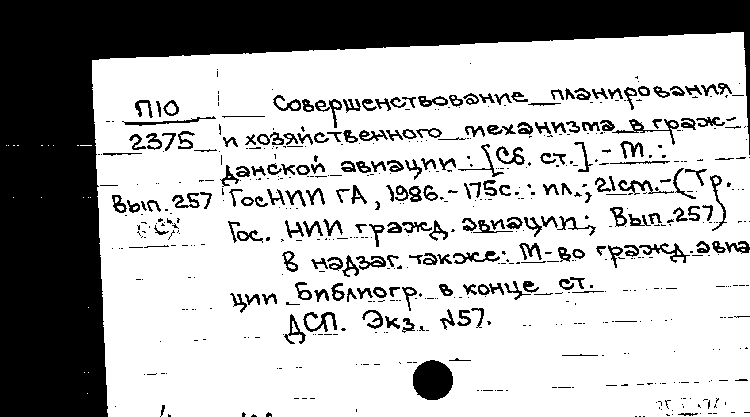 П10
2375
Вып. 257
Совершенствование планирования
и хозяйственного механизма в граж-
данской авиации : [Сб. ст.]. - М. :
ГосНИИ ГА, 1986. - 175с. : ил.; 21см. - (Тр.
Гос. НИИ гражд. авиации; Вып. 257)
В надзаг. также: М-во гражд. авиа
ции. Библиогр. в конце ст.
ДСП. Экз. №57.